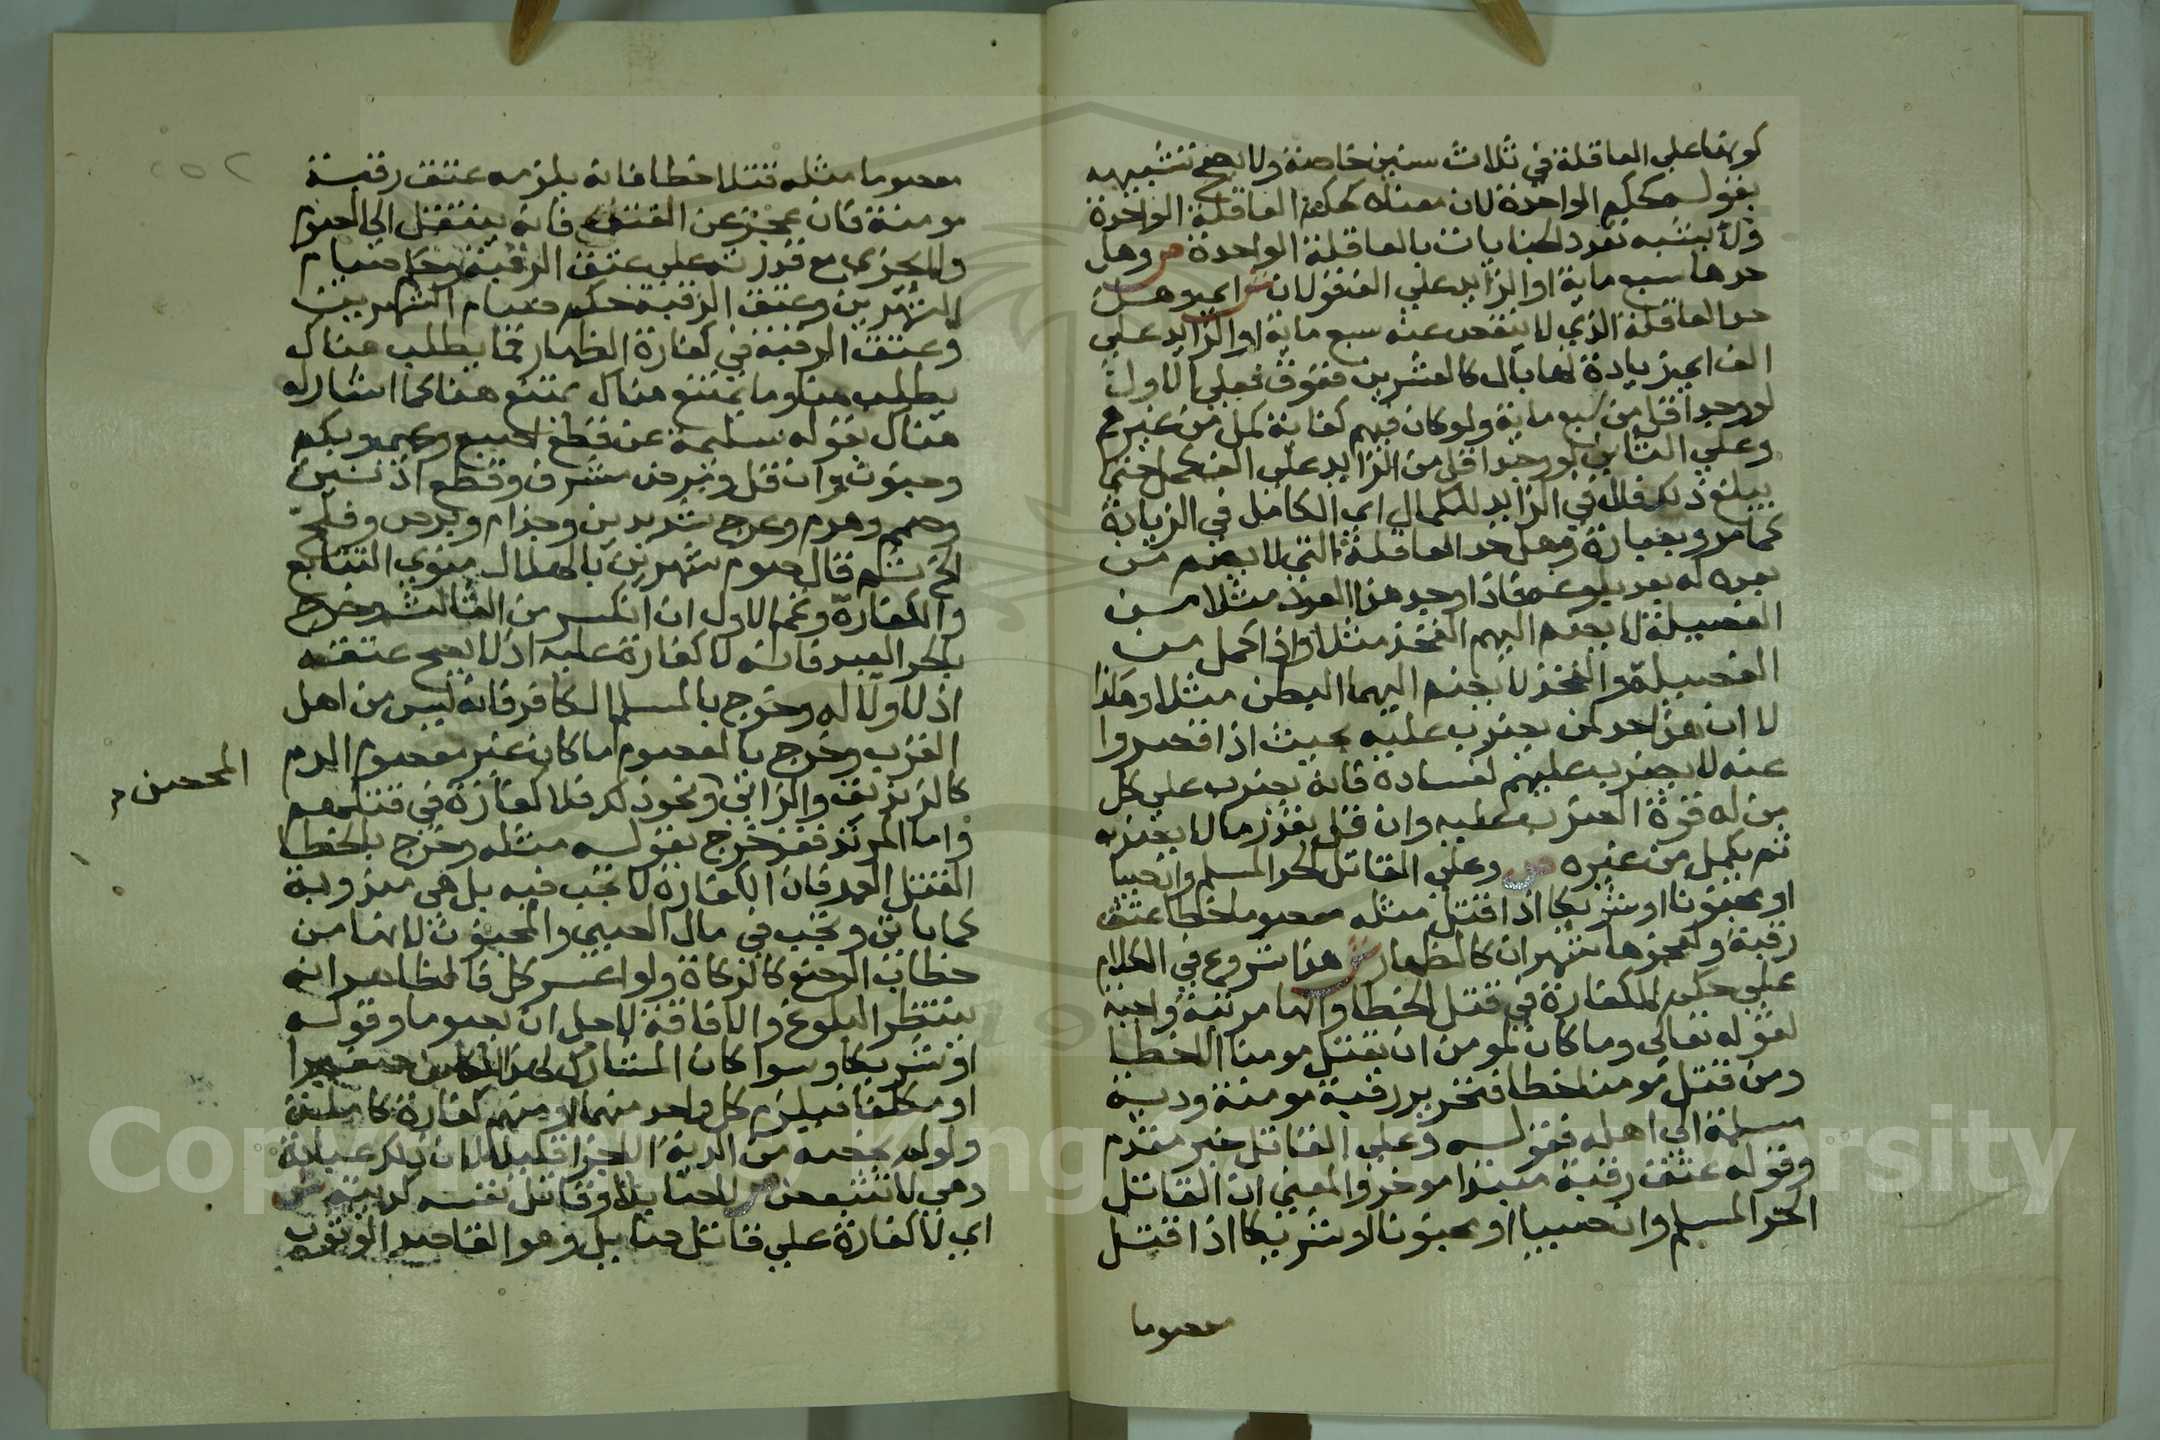 كونها على العاقلة في ثلاث سنين خاصة ولا يصح تشبيهه
بقوله كحكم الواحدة لان معناه كحكم العاقلة الواحدة
ولا يشبه تعدد الجنايات بالعاقلة الواحدة ص وهل
حدها سبع ماية او الزايد على الف قولان ش اي وهل
حد العاقلة الذي لا ينقص عنه سبع ماية او الزايد على
الف اي زيادة لها بال كالعشرين ففوق فعلى الاول
لو وجد اقل من سبع ماية ولو كان فيهم كفاية كمل من غيرهم
وعلى الثاني لو وجد اقل من الزايد على الف كمل حتى
يبلغ ذلك فال في الزايد للكمال اي الكامل في الزيادة
كما مر وبعبارة وهل حد العاقلة التي لا يضم من
بعده له بعد بلوغه فاذا وجد هذا العدد مثلا من
الفصيلة لا يضم اليهم الفخذ مثلا واذا كمل من
الفصيلة والفخذ لا يضم اليهما البطن مثلا وهكذا
لا ان هذا حد لمن يضرب عليه بحيث اذا قصروا
عنه لا يضرب عليهم لفساده فانه يضرب على كل
من له قدرة الضرب عليه وان قل بقدر ما لا يضر به
ثم يكمل من غيره ص وعلى القاتل الحر المسلم وان صبيا
او مجنونا او شريكا اذا قتل مثله معصوما خطا عتق
رقبة ولعجزها شهران كالظهار ش هذا شروع في الكلام
على حكم الكفارة في قتل الخطا وانها مرتبة واجبة
لقوله تعالى وما كان لمومن ان يقتل مومنا الا خطا
ومن قتل مومنا خطا فتحرير رقبة مومنة ودية
مسلمة الى اهله فقوله وعلى القاتل خبر مقدم
وقوله عتق رقبة مبتدا موخر والمعنى ان القاتل
الحر المسلم وان صبيا او مجنونا او شريكا اذا قتل
معصوما
معصوما مثله قتلا خطا فانه يلزمه عتق رقبة
مومنة فان عجز عن العتق فانه ينتقل الى الصوم
ولا يجزي مع قدرته على عتق الرقبة وحكم صيام
الشهرين وعتق الرقبة حكم صيام الشهرين
وعتق الرقبة في كفارة الظهار فما يطلب هناك
يطلب هنا وما يمتنع هناك يمتنع هنا كما اشار له
هناك بقوله سليمة عن قطع اصبع وعمى وبكم
وجنون وان قل ومرض مشرف وقطع اذنين
وصمم وهرم وعرج شديدين وجذام وبرص وفلج
الخ ثم قال صوم شهرين بالهلال منوي التتابع
والكفارة وتمم الاول ان انكسر من الثالث وخرج
بالحر العبد فانه لا كفارة عليه اذ لا يصح عتقه
اذ لا ولا له وخرج بالمسلم الكافر فانه ليس من اهل
القرب وخرج بالمعصوم ما كان غير معصوم الدم
كالزنديق والزاني ونحو ذلك فلا كفارة في قتلهم
المحصن
واما المرتد فقد خرج بقوله مثله وخرج بالخطا
القتل العمد فان الكفارة لا تجب فيه بل هي مندوبة
كما ياتي وتجب في مال الصبي والمجنون لانها من
خطاب الوضع كالزكاة ولو اعسر كل فالظاهر انه
ينتظر البلوغ والافاقة لاجل ان يصوما وقوله
او شريكا وسوا كان المشارك صغيرا
او مكلفا فيلزم كل واحد منهما او منهم كفارة كاملة
ولو لم يخصه من الدية الا جزا قليلا لان ذلك عبادة
وهي لا تتبعض ص لا صايلا وقاتل نفسه كديته ش
اي لا كفارة على قاتل صايل وهو القاصد الوثوب